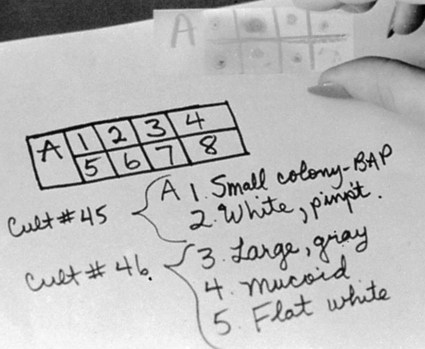 A
A 1 2 3 4
5 6 7 8
Cult #45 A 1. Small colony-BAP
2. White, pinpt.
Cult # 46. 3. Large, gray
4. Mucoid
5. Flat white